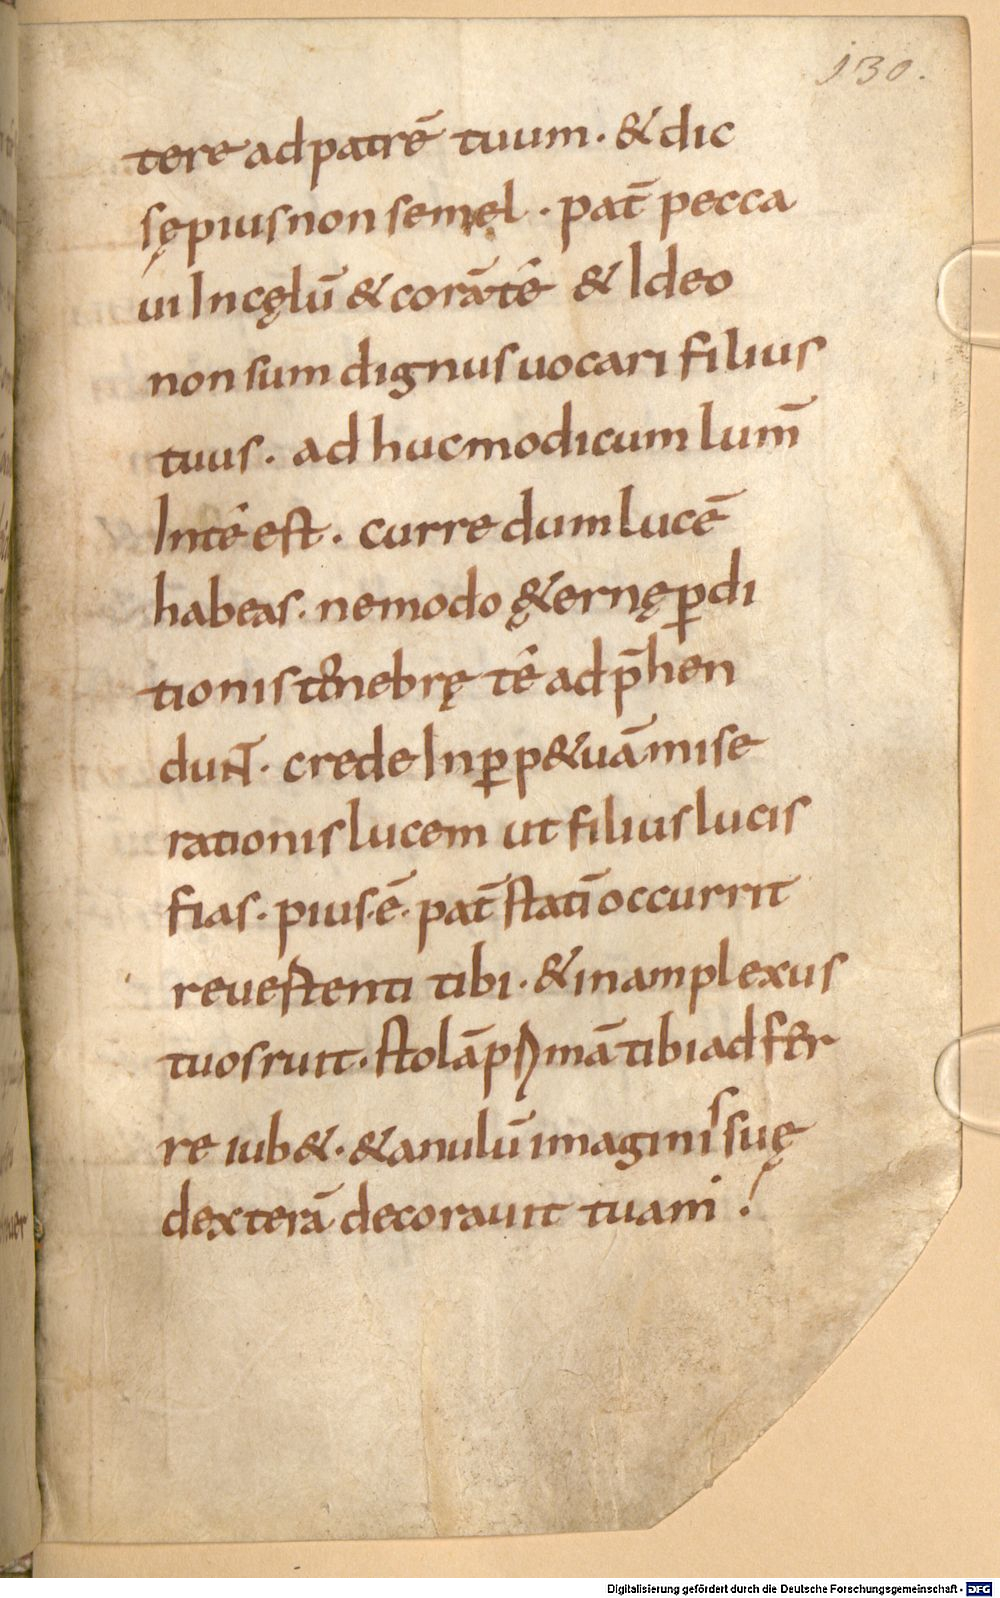 130.
tere ad patrē tuum · & dic
sępius non semęl · pat̄ pecca
ui In cęlū & corā té & Ideo
non sum dignus uocari filius
tuus · ad huc modicum lum̄
In té est · curre dum lucē
habeas · ne modo ę&ernę ꝑdi
tionis tenebrę té adp̄hen
dunt̄ · crede In ꝑp&uā mise
rationis lucem ut filius lucis
fias · pius · ē · pat̄ statī occurrit
reuertenti tibi · & in amplexus
tuos ruit · stolā pmā tibi adfer
re iub& · & anulū imaginis suę
dexterā decorauit tuam !
Digitalisierung gefördert durch die Deutsche Forschungsgemeinschaft - DFG